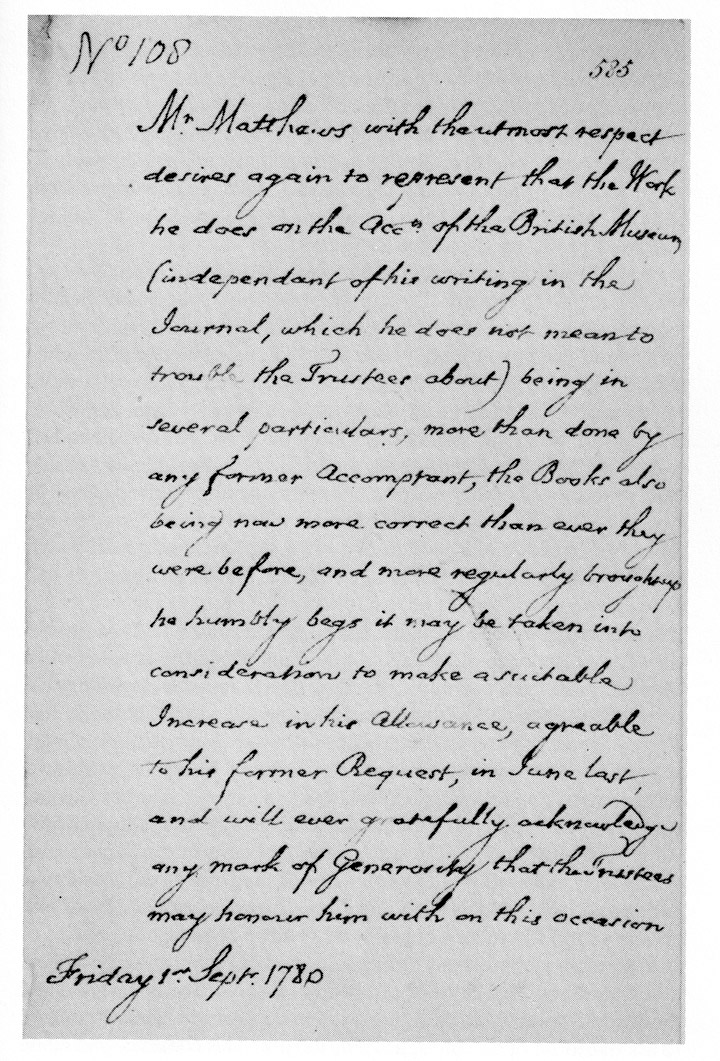 No 108
585
Mr Matthews with the utmost respect
desires again to represent that the Work
he does on the Acc.ts of the British Museum
(independant of his writing in the
Journal, which he does not mean to
trouble the Trustees about) being in
several particulars, more than done by
any former Accomptant, the Books also
being now more correct than ever they
were before, and more regularly brought up
he humbly begs it may be taken into
consideration to make a suitable
Increase in his Allowance, agreable
to his former Request, in June last,
and will ever gratefully acknowledge
any mark of Generosity that the Trustees
may honour him with on this occasion
Friday 1st Sept. 1780